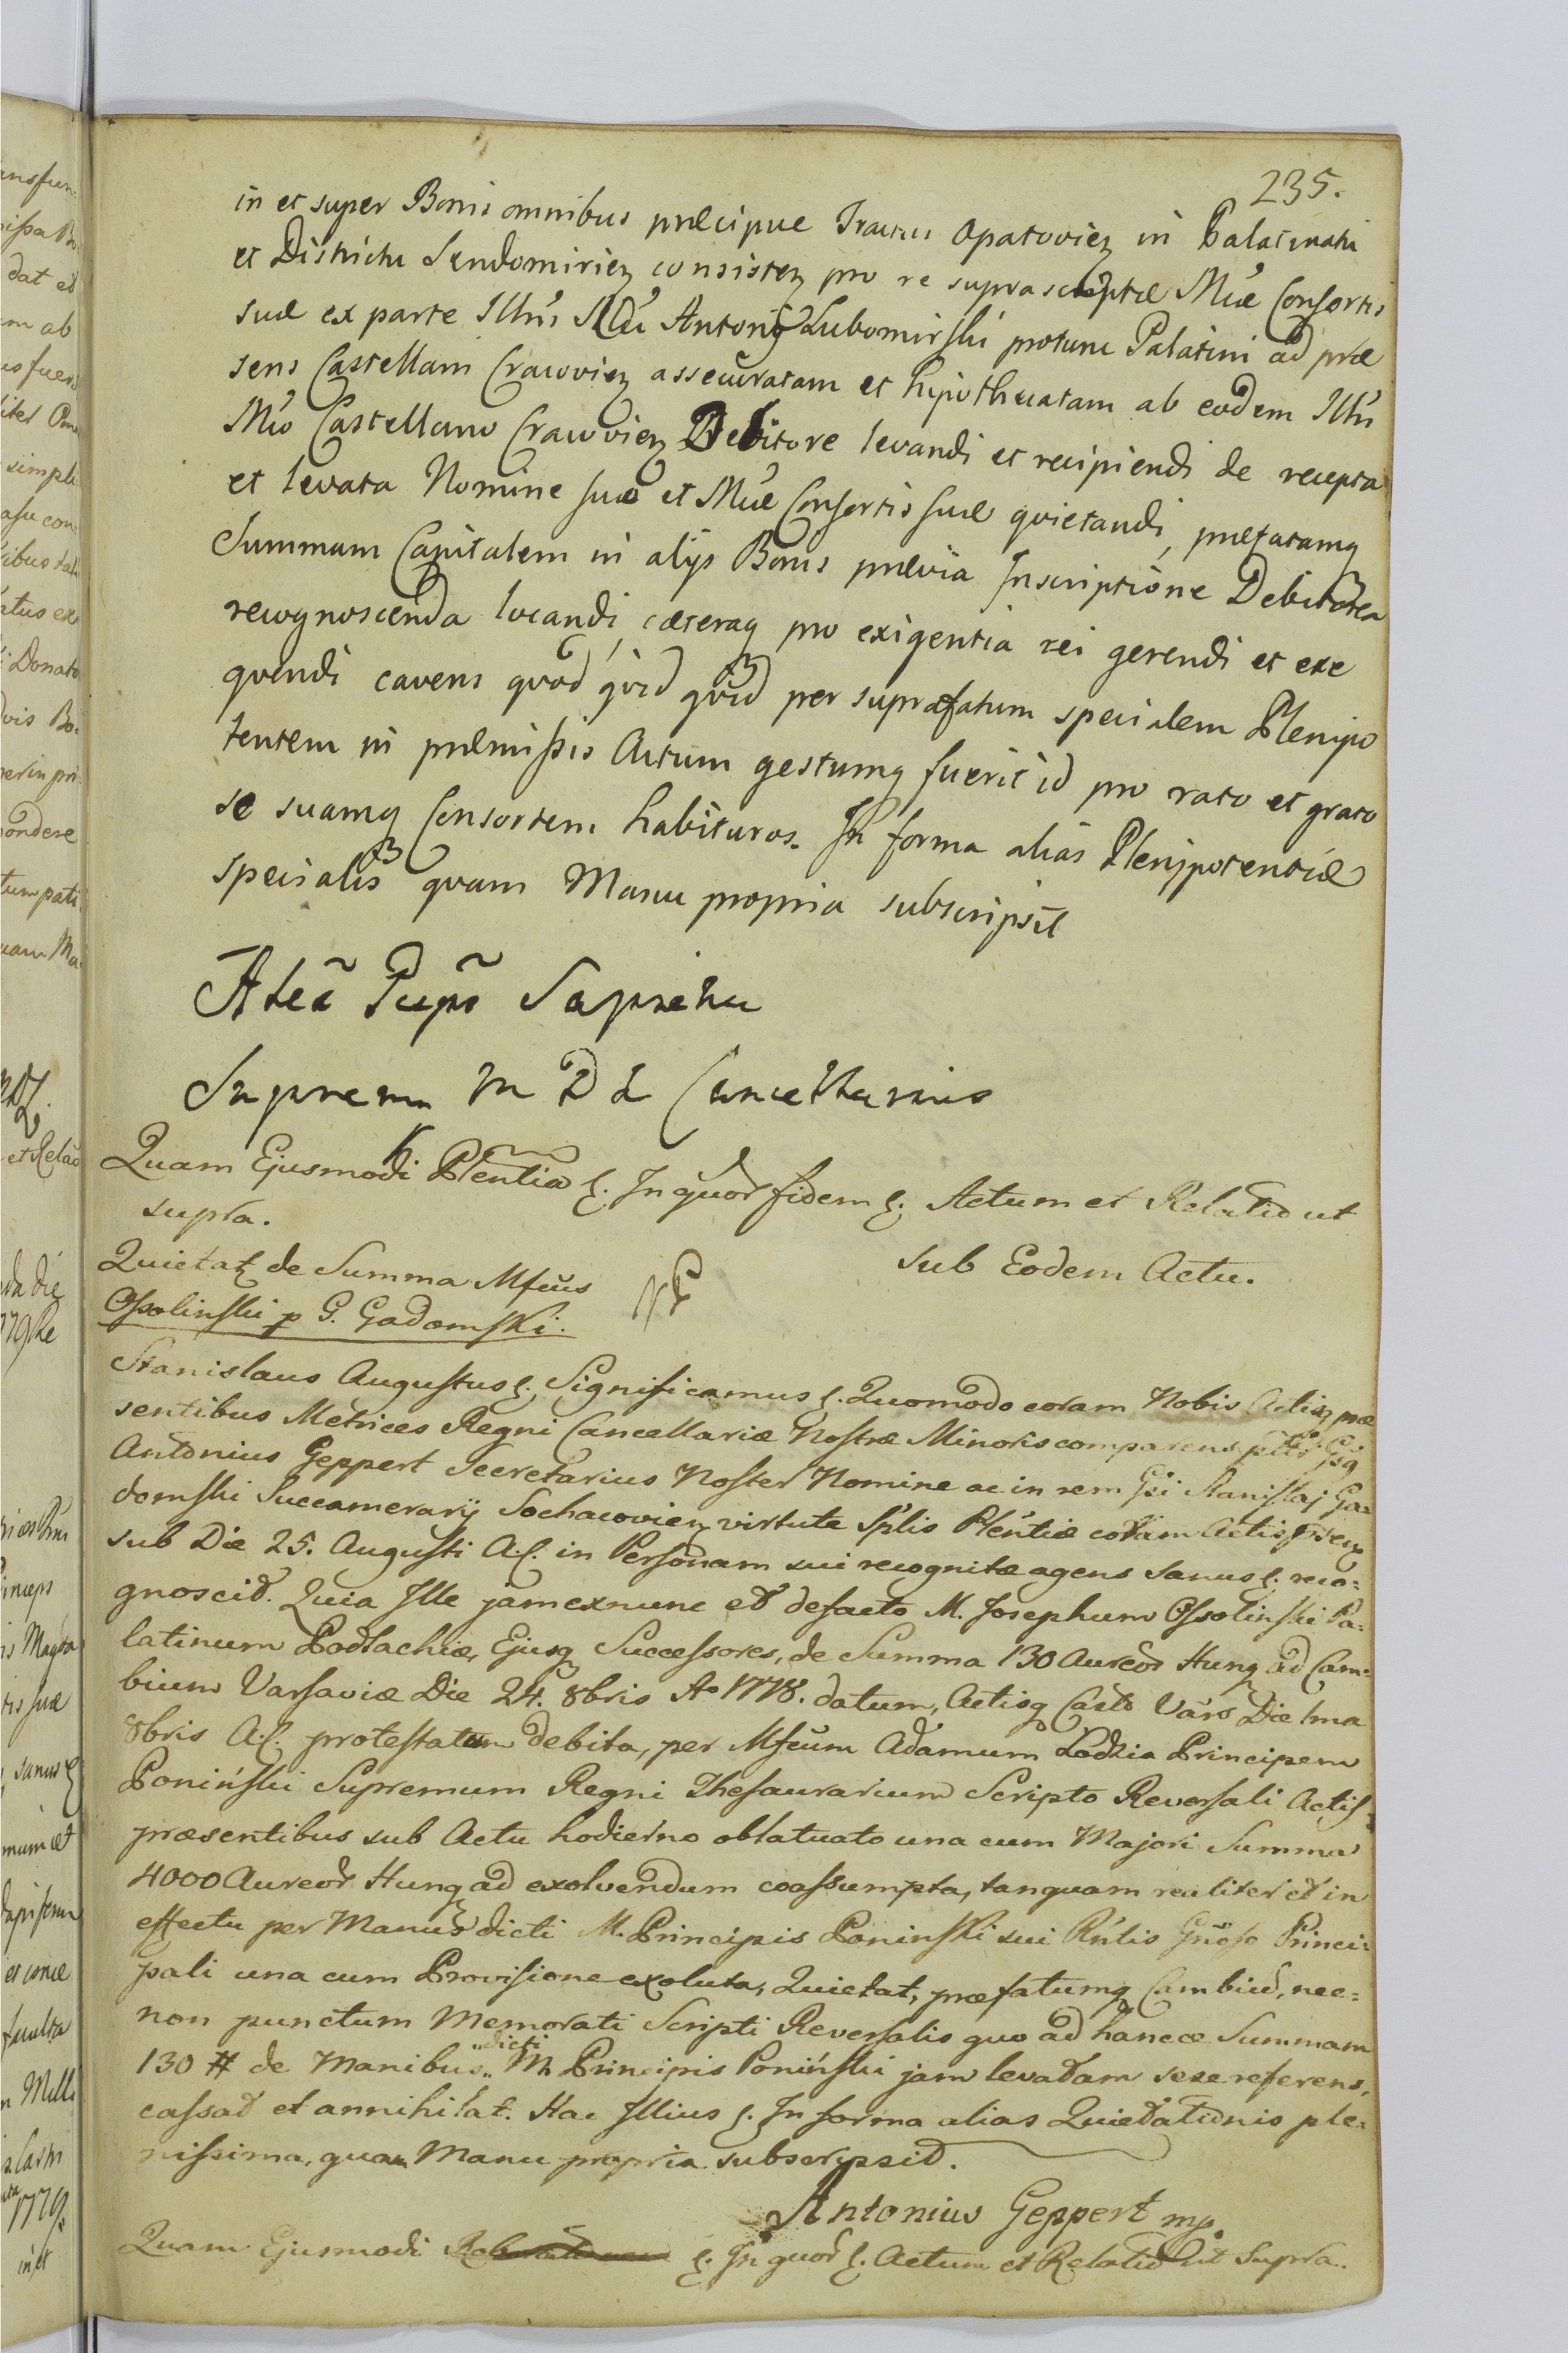 235.
in et super Bonis omnibus præcipue Tractus Opatovień in Palatinatu
et Districtu Sendomirień consisteń pro re suprascriptæ Mcæ Consortis
suæ ex parte Illris Mci Antonij Lubomirski protunc Palatini ad præ
sens Castellani Cracovień assecuratam et hipothecatam ab eodem Illri
Mco Castellano Cracovień Debitore levandi et recipiendi de recepta
et levata Nomine suo et Mcæ Consortis suæ quietandi, præfatamq
Summam Capitalem in alijs Bonis prævia Inscriptione Debitorea
recognoscenda locandi, cæteraq pro exigentia rei gerendi et exe
quendi cavens quod quid quid per supræfatum specialem Plenipo
tentem in præmissis Actum gestumq fuerit id pro rato et grato
se suamq Consortem habituros. In forma alias Plenipotentiæ
specialis quam Manu propria subscripsit
Alex Sapieha
Supremu M D L Cancellarius
Quam Ejusmodi Plentia &. In quor fidem &. Actum et Relatio ut
supra.
sub Eodem Actu.
Quietat de Summa Mfcus
Ossolinski p G. Gadomski.
Stanislaus Augustus &. Significamus &. Quomodo coram Nobis Actisq præ
sentibus Metrices Regni Cancellariæ Nostræ Minoris comparens pltr Gsq
Antonius Geppert Secretarius Noster Nomine ac in rem Gsi Stanislaj Ga=
domski Succamerarij Sochacovień virtute Splis Plentiæ coram Actis psen
sub Die 25. Augusti A. C. in Personam sui recognitæ agens Sanus &. reco=
gnoscit. Quia Ille jam exnunc et defacto M. Josephum Ossolinski Pa=
latinum Podlachiæ, Ejusq Successores, de Summa 130 Aureor Hung ad Cam=
bium Varsaviæ Die 24. 8bris Ao 1778. datum, Actisq Castr Vars Die 1ma
8bris A. C. protestatum debita, per Mfcum Adamum Lodzia Principem
Poniński Supremum Regni Thesaurarium Scripto Reversali Actis
præsentibus sub Actu hodierno oblatuato una cum Majori Summa
4000 Aureor Hung ad exolvendum coassumpta, tanquam realiter et in
effectu per Manus dicti M. Principis Poninski sui Rntis Gnose Princi=
pali una cum Provisione exoluta, Quietat, præfatumq Cambiũ, nec=
non punctum Memorati Scripti Reversalis quo ad hancce Summam
130 # de Manibus "dicti" M Principis Poniński jam levatam sese referens,
cassat et annihilat. Hac Illius &. In forma alias Quietationis ple=
nissima, quam Manu propria subscripsit.
Antonius Geppert mp.
Quam Ejusmodi &. In quor &. Actum et Relatio ut Supra.